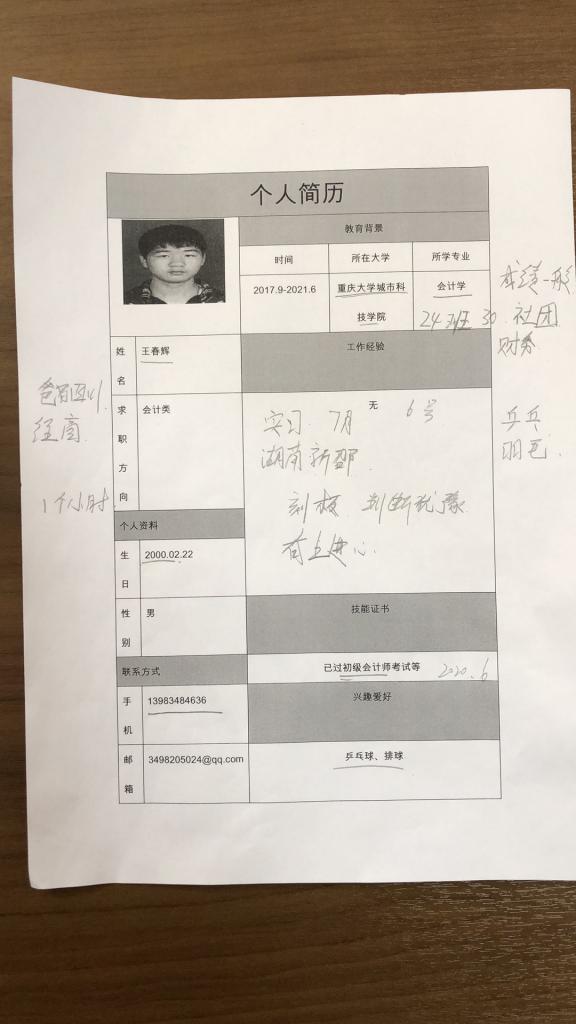 个人简历
教育背景
时间
所在大学
所学专业
2017.9-2021.6
重庆大学城市科
技学院
会计学
成绩一般
24班 30
社团
财务
姓
名
王春辉
工作经验
求
职
方
向
会计类
无
实习 7月 6号
湖南新邵
刻板 判断犹豫
有上进心
1个小时
乒乓
羽毛
个人资料
生
日
2000.02.22
性
别
男
技能证书
已过初级会计师考试等
2020.6
联系方式
手
机
13983484636
兴趣爱好
邮
箱
3498205024@qq.com
乒乓球、排球